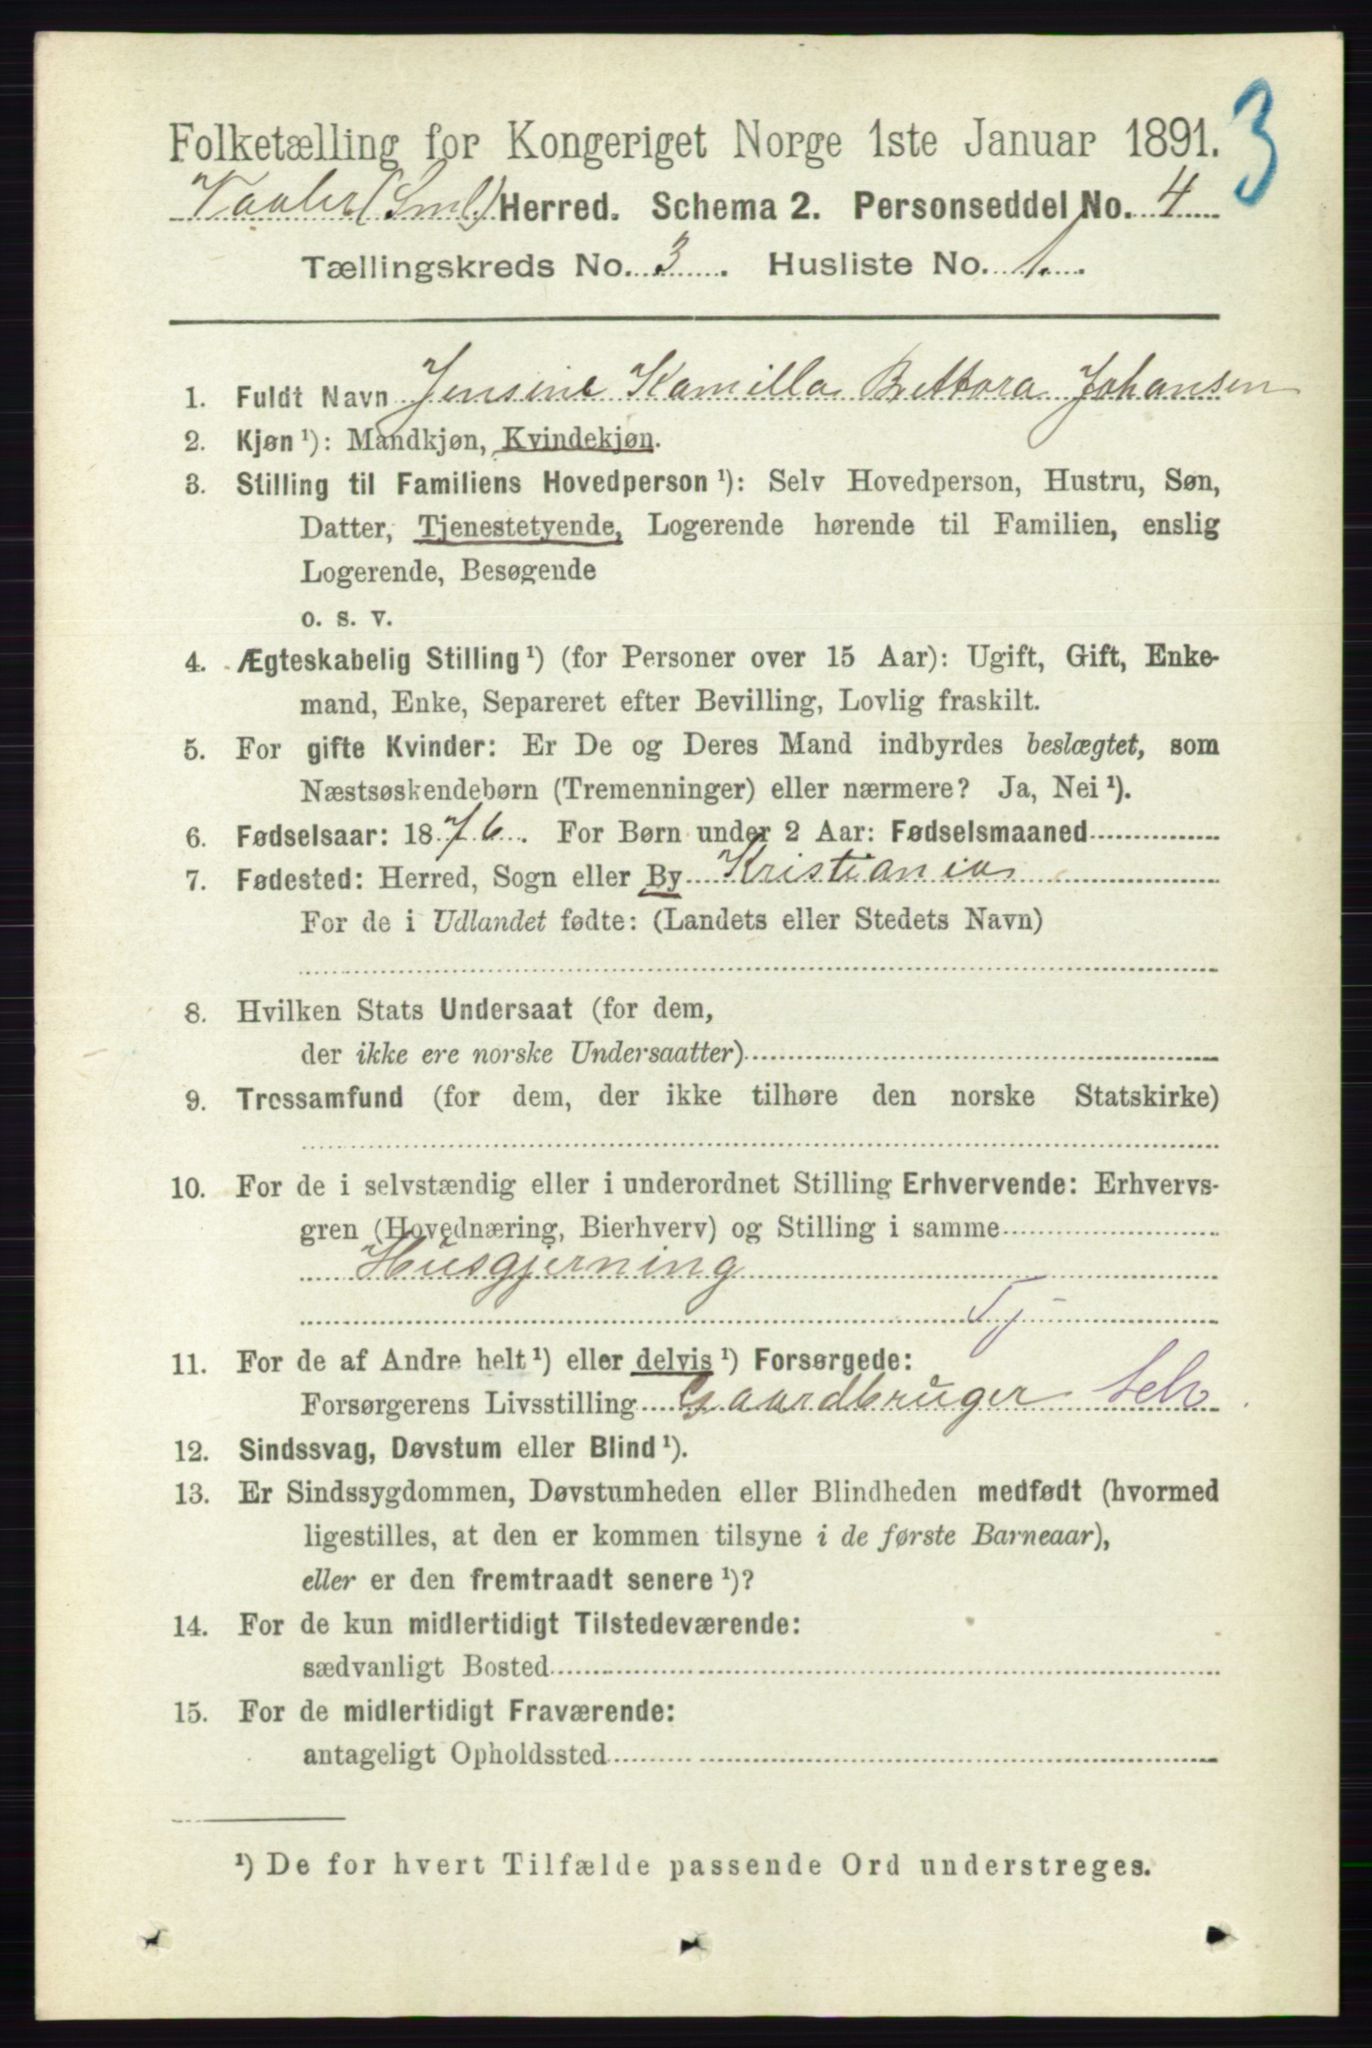 3
Folketælling for Kongeriget Norge 1ste Januar 1891.
Vaaler (Sml) Herred. Schema 2. Personseddel No. 4
Tællingskreds No. 3. Husliste No. 1.
1. Fuldt Navn Jensine Kamilla Bettora Johansen
2. Kjøn ¹): Mandkjøn, Kvindekjøn.
3. Stilling til Familiens Hovedperson ¹): Selv Hovedperson, Hustru, Søn,
Datter, Tjenestetyende, Logerende hørende til Familien, enslig
Logerende, Besøgende
o. s. v.
4. Ægteskabelig Stilling ¹) (for Personer over 15 Aar): Ugift, Gift, Enke-
mand, Enke, Separeret efter Bevilling, Lovlig fraskilt.
5. For gifte Kvinder: Er De og Deres Mand indbyrdes beslægtet, som
Næstsøskendebørn (Tremenninger) eller nærmere? Ja, Nei ¹).
6. Fødselsaar: 1876. For Børn under 2 Aar: Fødselsmaaned
7. Fødested: Herred, Sogn eller By Kristiania
For de i Udlandet fødte: (Landets eller Stedets Navn)
8. Hvilken Stats Undersaat (for dem,
der ikke ere norske Undersaatter)
9. Trossamfund (for dem, der ikke tilhøre den norske Statskirke)
10. For de i selvstændig eller i underordnet Stilling Erhvervende: Erhvervs-
gren (Hovednæring, Bierhverv) og Stilling i samme
Husgjerning
Tj
11. For de af Andre helt ¹) eller delvis ¹) Forsørgede:
Forsørgerens Livsstilling Gaardbruger Selv
12. Sindssvag, Døvstum eller Blind ¹).
13. Er Sindssygdommen, Døvstumheden eller Blindheden medfødt (hvormed
ligestilles, at den er kommen tilsyne i de første Barneaar),
eller er den fremtraadt senere ¹)?
14. For de kun midlertidigt Tilstedeværende:
sædvanligt Bosted
15. For de midlertidigt Fraværende:
antageligt Opholdssted
¹) De for hvert Tilfælde passende Ord understreges.